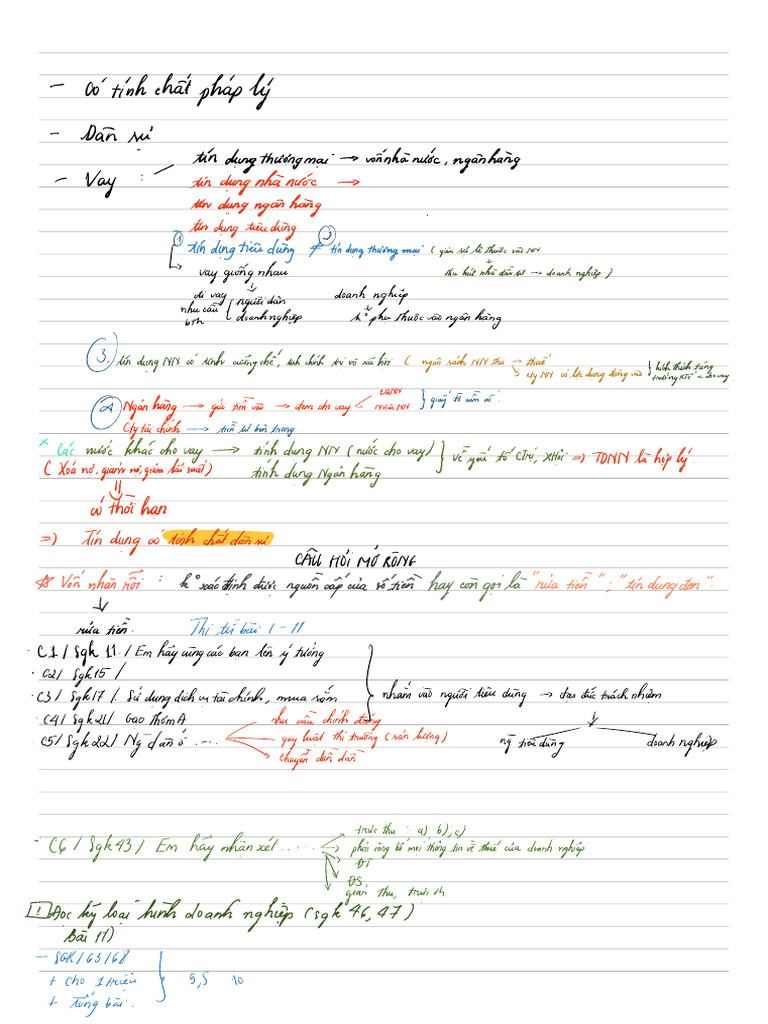 - Có tính chất pháp lý
- Dân sự
- Vay : tín dụng thương mại → vốn nhà nước, ngân hàng
tín dụng nhà nước →
tín dụng ngân hàng
tín dụng tiêu dùng
① tín dụng tiêu dùng ≠ ② tín dụng thương mại ( gián sự lệ thuộc vào NN
vay giống nhau
thu hút nhà đầu tư → doanh nghiệp )
đi vay người dân doanh nghiệp
nhu cầu doanh nghiệp k° phụ thuộc vào ngân hàng
3. tín dụng NN có tính cưỡng chế, tính chính trị và xã hội ( ngân sách NN thu → thuế
cty NN có lợi dụng đóng vào kích thích tăng trưởng KTế - cho vay
Ngân hàng → gửi tiền vào → đem cho vay giấy tờ sẵn có.
Cty tài chính → tiền từ bên trong
x Các nước khác cho vay → tính dụng NN ( nước cho vay ) về yếu tố CTrị, XHội => TDNN là hợp lý.
( Xoá nợ, giảm nợ, giảm lãi suất ) tính dụng Ngân hàng
có thời hạn
=> Tín dụng có tính chất dân sự
CÂU HỎI MỞ RỘNG
Vốn nhàn rỗi : k° xác định được nguồn cấp của số tiền hay còn gọi là "rửa tiền" ; "tín dụng đen".
rửa tiền. Thi từ bài 1 - 11
C1 / Sgk 11. / Em hãy cùng các bạn lên ý tưởng
C2 / Sgk 15 /
C3 / Sgk 17 /. Sử dụng dịch vụ tài chính, mua sắm nhắm vào người tiêu dùng → đạo đức trách nhiệm
C4 / Sgk 21 / Gạo Thơm A nhu cầu chính đáng
C5 / Sgk 22 / Ng dân ở .... quy luật thị trường ( sản lượng ) ng tiêu dùng doanh nghiệp
chuyển dần dần
trực thu : a) b), c)
- C6 / Sgk 43 / Em hãy nhận xét ...... phải công bố mọi thông tin về thuế của doanh nghiệp
ĐT
ĐS
gián thu, trực th
! Đọc kỹ loại hình doanh nghiệp ( sgk 46, 47 )
Bài 11)
- SGK / 65 / 68
+ cho 1 triệu 9,5 10
+ Tổng bài.